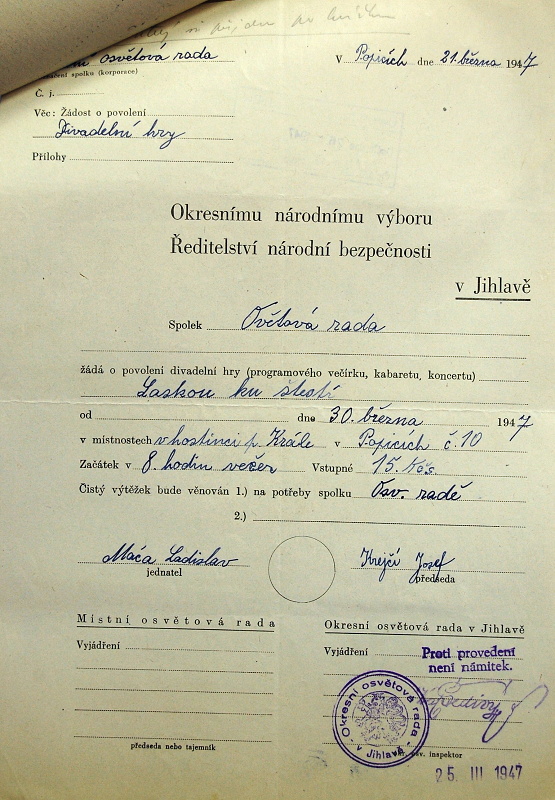 ní osvětová rada
V Popicích dne 21. března 1947
spolku (korporace)
Č. j.
Věc: Žádost o povolení
Divadelní hry
Přílohy
Okresnímu národnímu výboru
Ředitelství národní bezpečnosti
v Jihlavě
Spolek Osvětová rada
žádá o povolení divadelní hry (programového večírku, kabaretu, koncertu)
Laskou ku štestí
od dne 30. března 1947
v místnostech v hostinci p. Krále v Popicích č. 10
Začátek v 8. hodin večer Vstupné 15. Kčs.
Čistý výtěžek bude věnován 1.) na potřeby spolku Osv. radě
2.)
Máca Ladislav
jednatel
Krejčí Josef
předseda
Místní osvětová rada
Vyjádření
předseda nebo tajemník
Okresní osvětová rada v Jihlavě
Vyjádření
Proti provedení
není námitek.
Okresní osvětová rada
v Jihlavě
osv. inspektor
25. III 1947